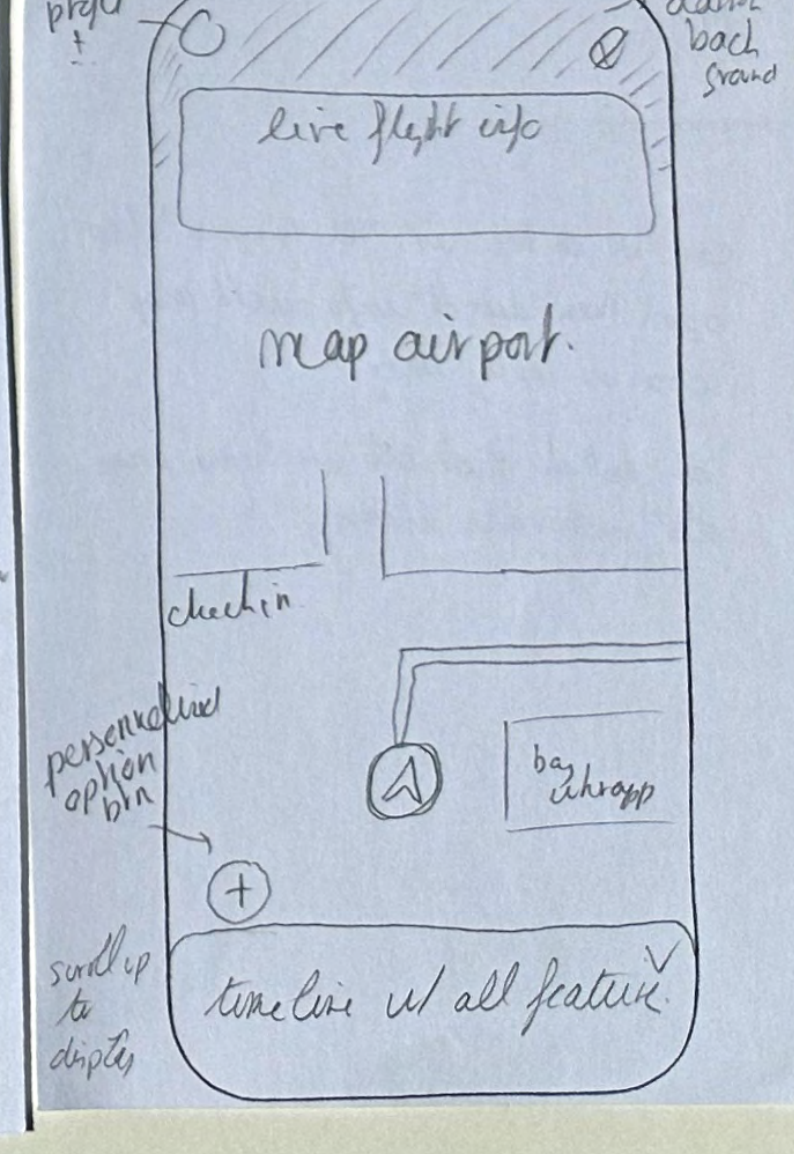 back
ground
live flight info
map airport.
check in
personnalised
option
btn
bag
whrapp
+
scroll up
to
display
timeline w/ all feature